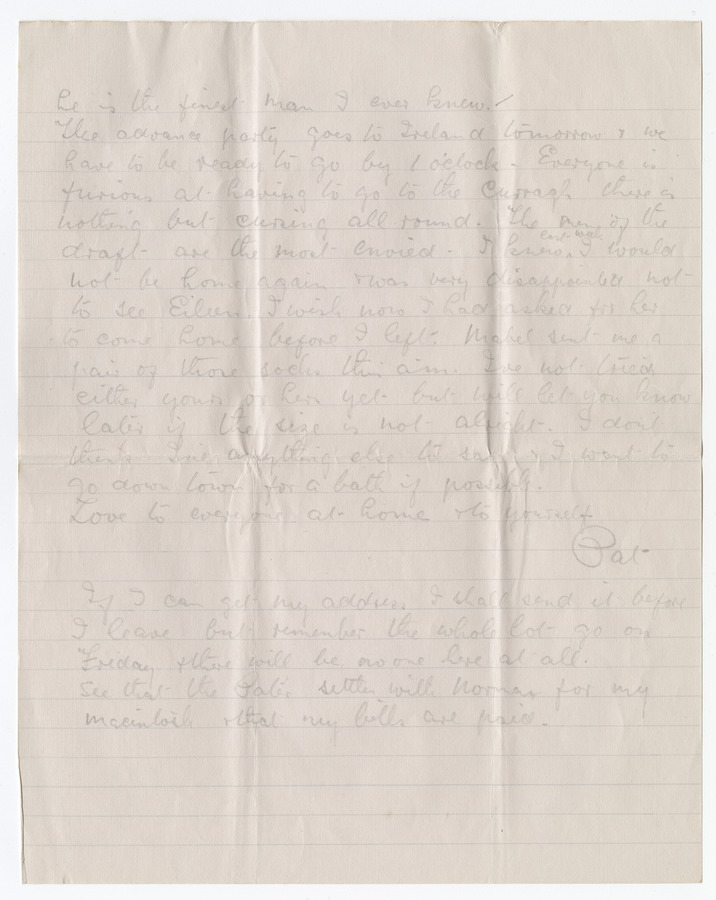 he is the finest man I ever knew.
The advance party goes to Ireland tomorrow & we
have to be ready to go by 1 o'clock. Everyone is
furious at having to go to the Curragh there is
nothing but cursing all round. The men of the
draft are the most envied. I knew last week I would
not be home again & was very disappointed not
to see Eileen. I wish now I had asked for her
to come home before I left. Mabel sent me a
pair of those socks this a.m. I've not tried
either yours or hers yet but will let you know
later if the size is not alright. I don't
think I've anything else to say & I want to
go down town for a bath if possible.
Love to everyone at home & to yourself
Pat
If I can get my address I shall send it before
I leave but remember the whole lot go on
Friday & there will be no one here at all.
See that the Pater settles with Norman for my
macintosh & that my bills are paid.